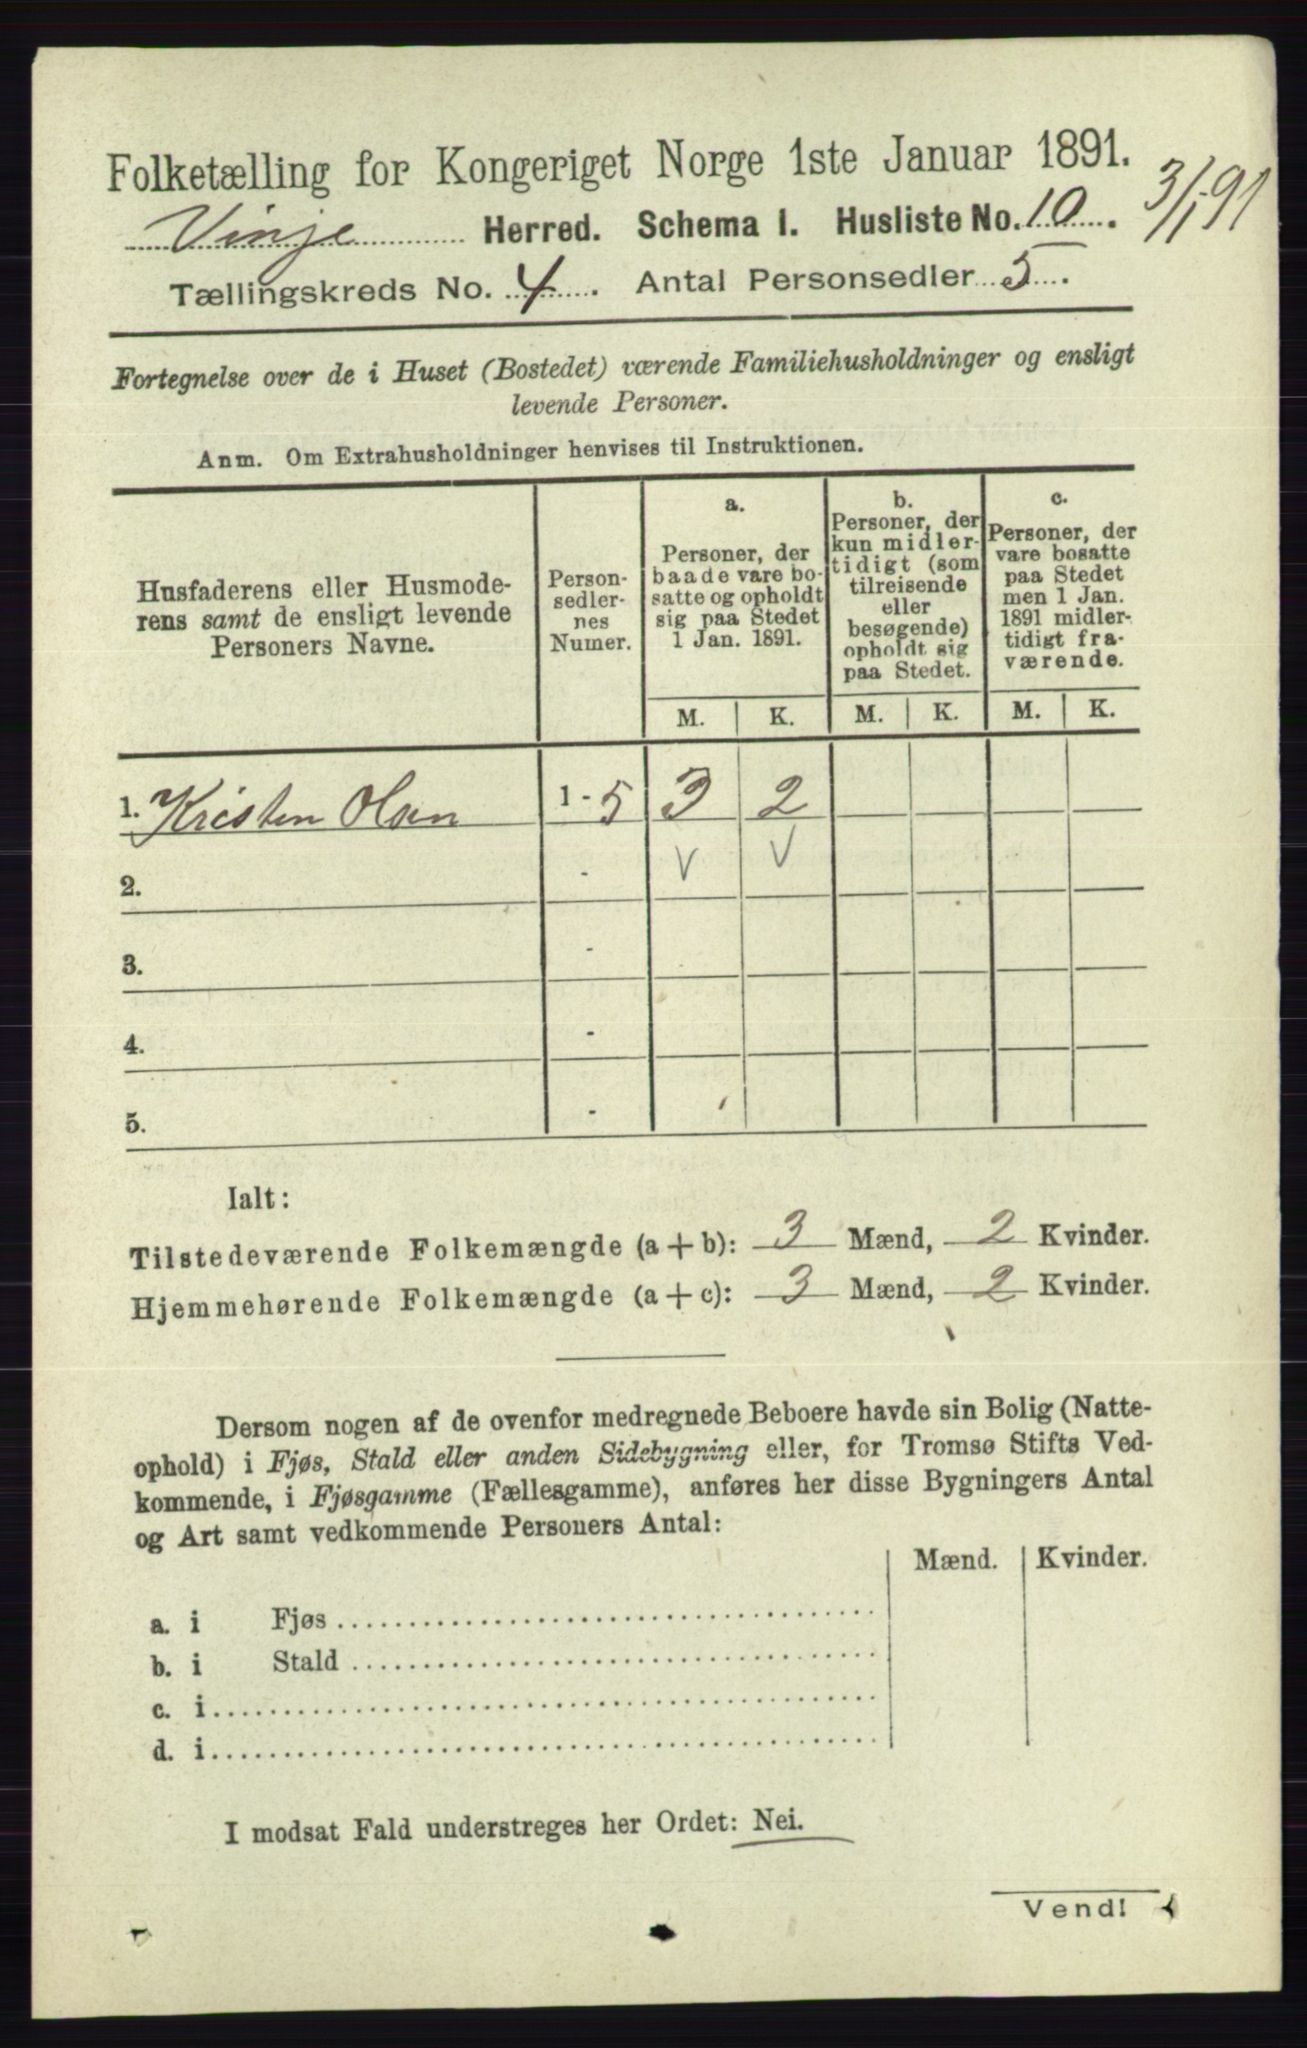 Folketælling for Kongeriget Norge 1ste Januar 1891.
3/1 91
Vinje Herred. Schema I. Husliste No. 10.
Tællingskreds No. 4. Antal Personsedler 5.
Fortegnelse over de i Huset (Bostedet) værende Familiehusholdninger og ensligt
levende Personer.
Anm. Om Extrahusholdninger henvises til Instruktionen.
Husfaderens eller Husmode-
rens samt de ensligt levende
Personers Navne.
Person-
sedler-
nes
Numer.
a.
Personer, der
baade vare bo-
satte og opholdt
sig paa Stedet
1 Jan. 1891.
b.
Personer, der
kun midler-
tidigt (som
tilreisende
eller
besøgende)
opholdt sig
paa Stedet.
c.
Personer, der
vare bosatte
paa Stedet
men 1 Jan.
1891 midler-
tidigt fra-
værende.
M. K. M. K. M. K.
1. Kristen Olsen 1 - 5 3 2
2. - V V
3. -
4. -
5. -
Ialt:
Tilstedeværende Folkemængde (a + b): 3 Mænd, 2 Kvinder.
Hjemmehørende Folkemængde (a + c): 3 Mænd, 2 Kvinder.
Dersom nogen af de ovenfor medregnede Beboere havde sin Bolig (Natte-
ophold) i Fjøs, Stald eller anden Sidebygning eller, for Tromsø Stifts Ved-
kommende, i Fjøsgamme (Fællesgamme), anføres her disse Bygningers Antal
og Art samt vedkommende Personers Antal:
Mænd. Kvinder.
a. i Fjøs
b. i Stald
c. i
d. i
I modsat Fald understreges her Ordet: Nei.
Vend!